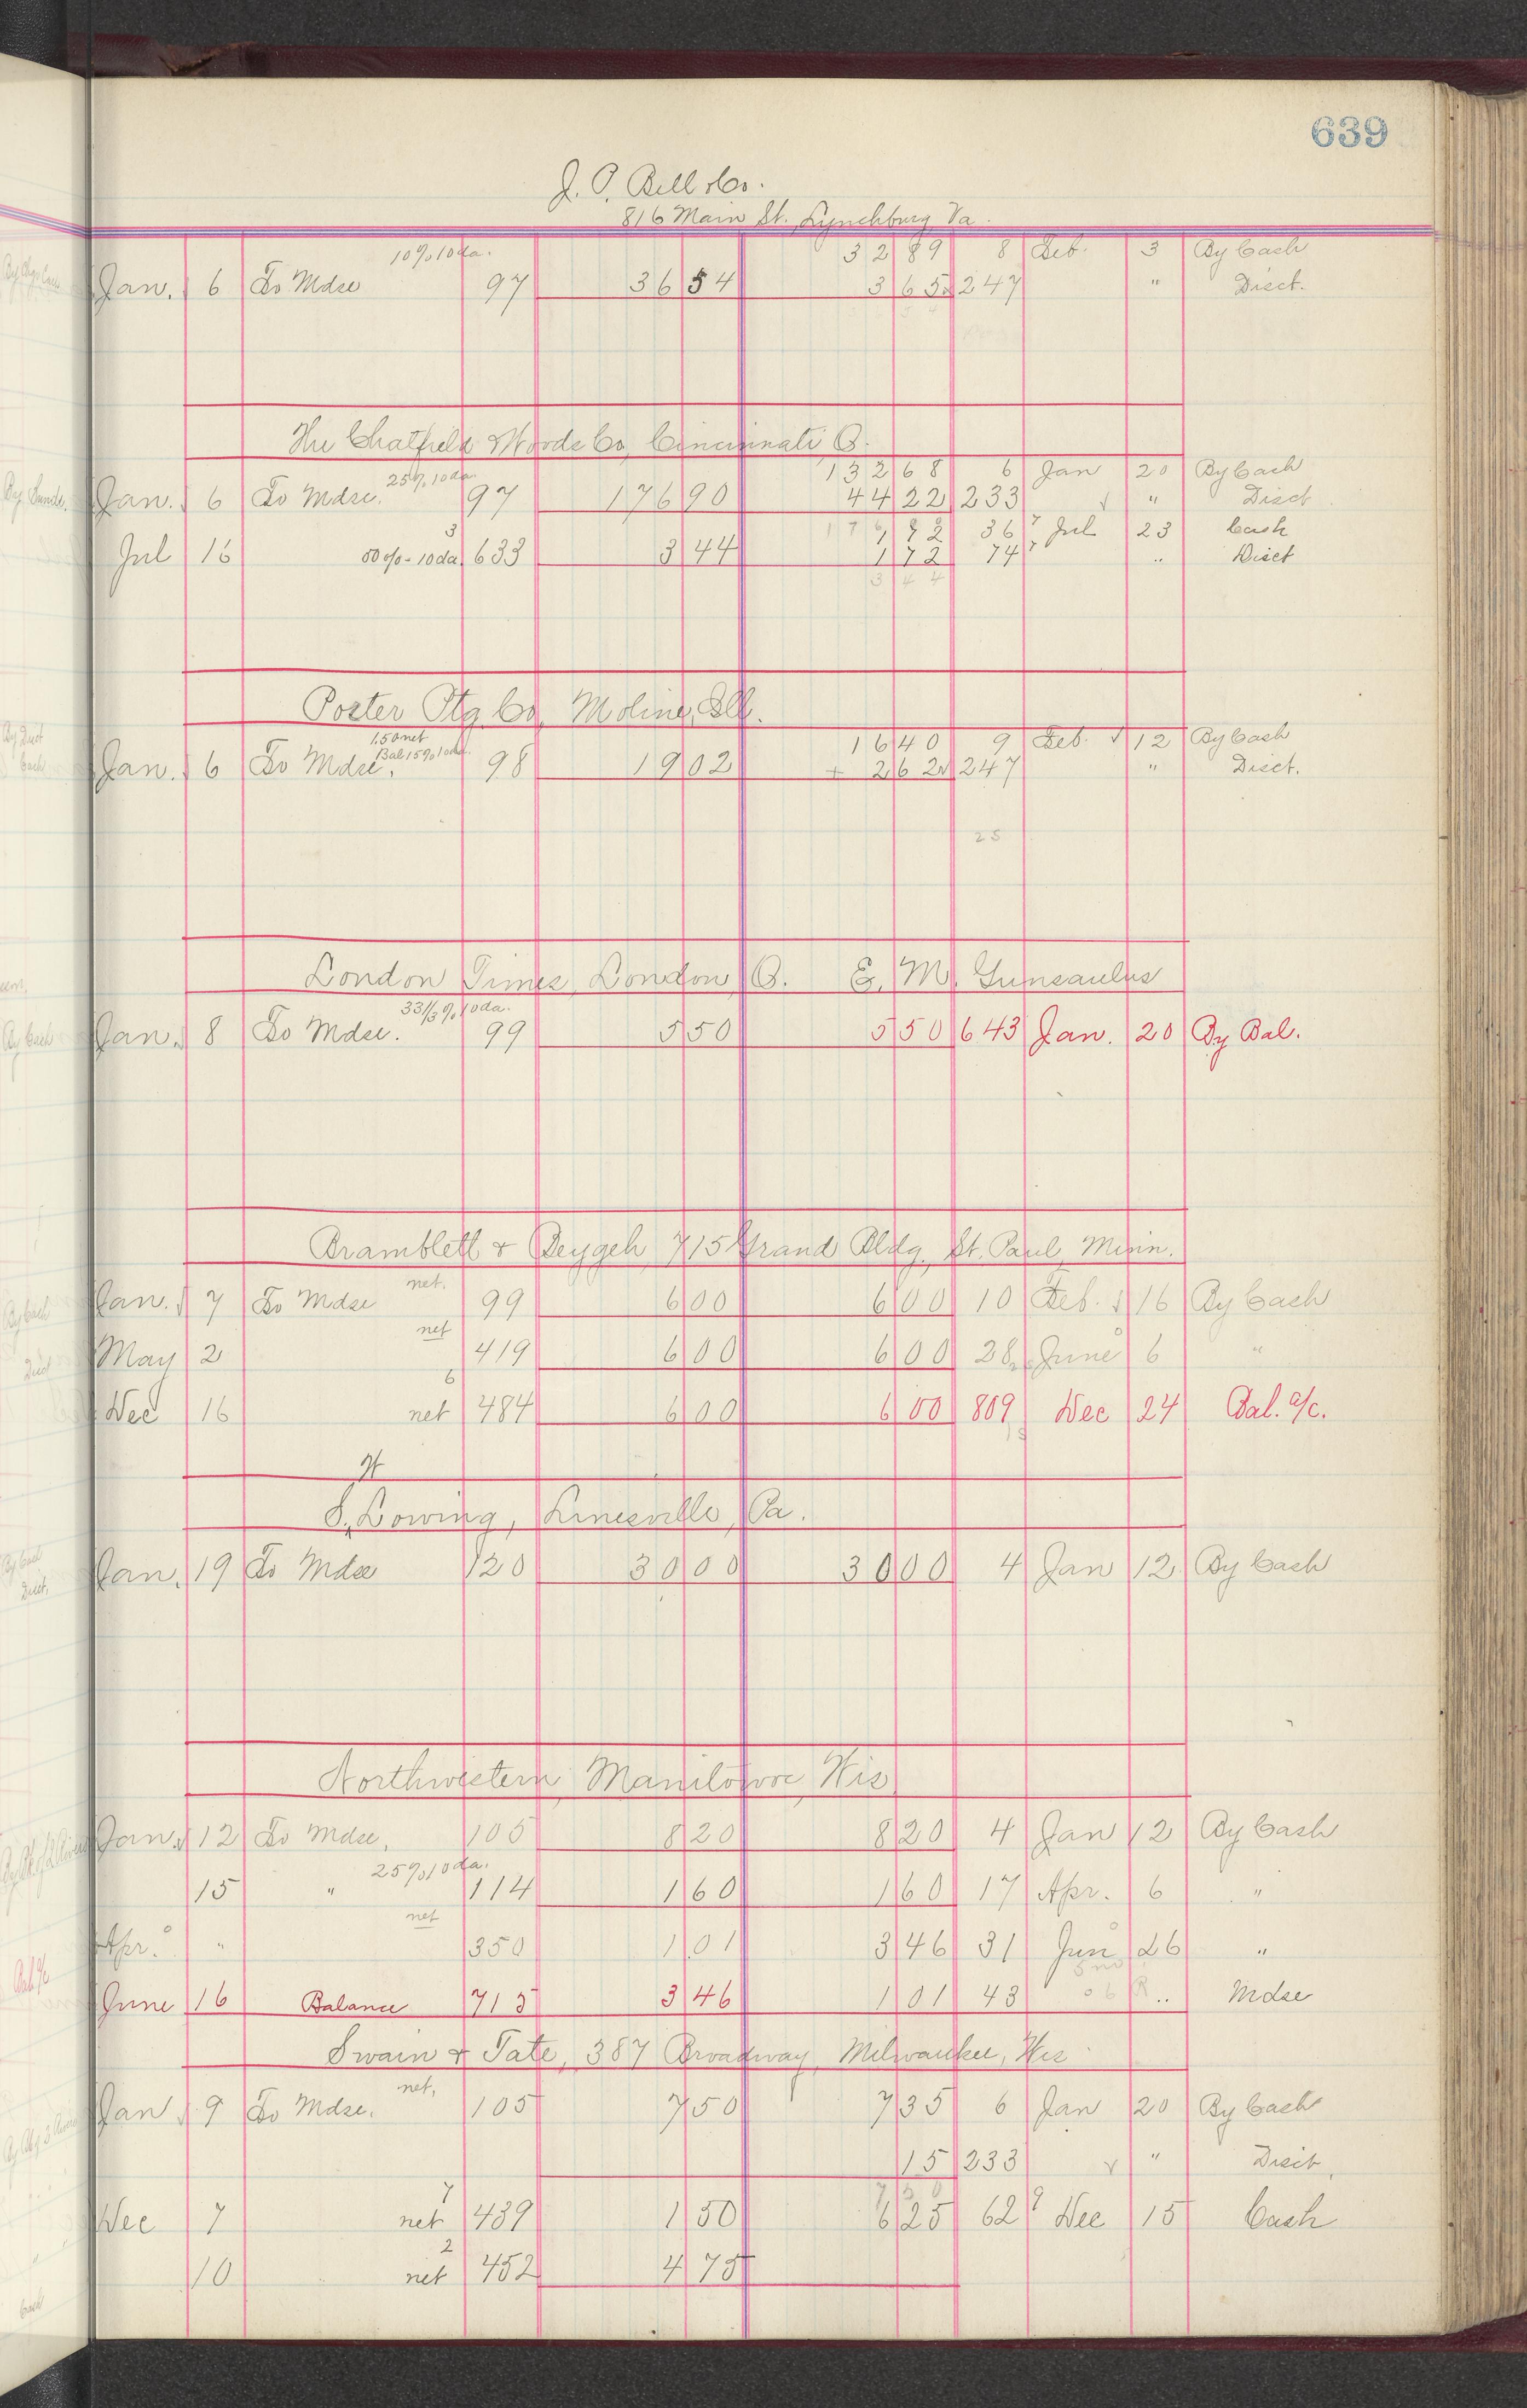 639
J. P. Bell & Co.
816 Main St. Lynchburg Va.
10% 10 da. 32 89 8 Feb. 3 By Cash
Jan. 6 To Mdse 97 36 54 3 65 247 " Disct.
The Chatfield & Woods Co, Cincinnati O.
25% 10 da. 132 68 6 Jan 20 By Cash
Jan. 6 To Mdse. 97 176 90 44 22 233 " Disct
3 1 72 36 Jul 23 Cash
Jul 16 50% - 10 da. 633 3 44 1 72 74 " Disct
3 44
Porter Ptg. Co, Moline, Ill.
1.50 net
Bal 15% 10 da. 16 40 9 Feb. 12 By Cash
Jan. 6 To Mdse. 98 19 02 2 62 247 " Disct.
25
London Times, London, O. E. M. Gunsaulus
33 1/3% 10 da.
Jan. 8 To Mdse. 99 5 50 5 50 643 Jan. 20 By Bal.
Bramblett & Beygeh, 715 Grand Bldg, St. Paul, Minn.
net.
Jan. 7 To Mdse 99 6 00 6 00 10 Feb. 16 By Cash
net
May 2 419 6 00 6 00 28 June 6 "
6
Dec 16 net 484 6 00 6 00 809 Dec 24 Bal. a/c.
H
S. Lowing, Linesville, Pa.
Jan. 19 To Mdse 120 30 00 30 00 4 Jan 12 By Cash
Northwestern, Manitowoc, Wis
Jan. 12 To Mdse, 105 8 20 8 20 4 Jan 12 By Cash
25% 10 da.
15 " 114 1 60 1 60 17 Apr. 6 "
net
Apr. " 350 1 01 3 46 31 Jun 26 "
June 16 Balance 715 3 46 1 01 43 " Mdse
Swain & Tate, 387 Broadway, Milwaukee, Wis
net,
Jan 9 To Mdse. 105 7 50 7 35 6 Jan 20 By Cash
15 233 " Disct.
7 7 50
Dec 7 net 439 1 50 6 25 62 9 Dec 15 Cash
2
10 net 452 4 75